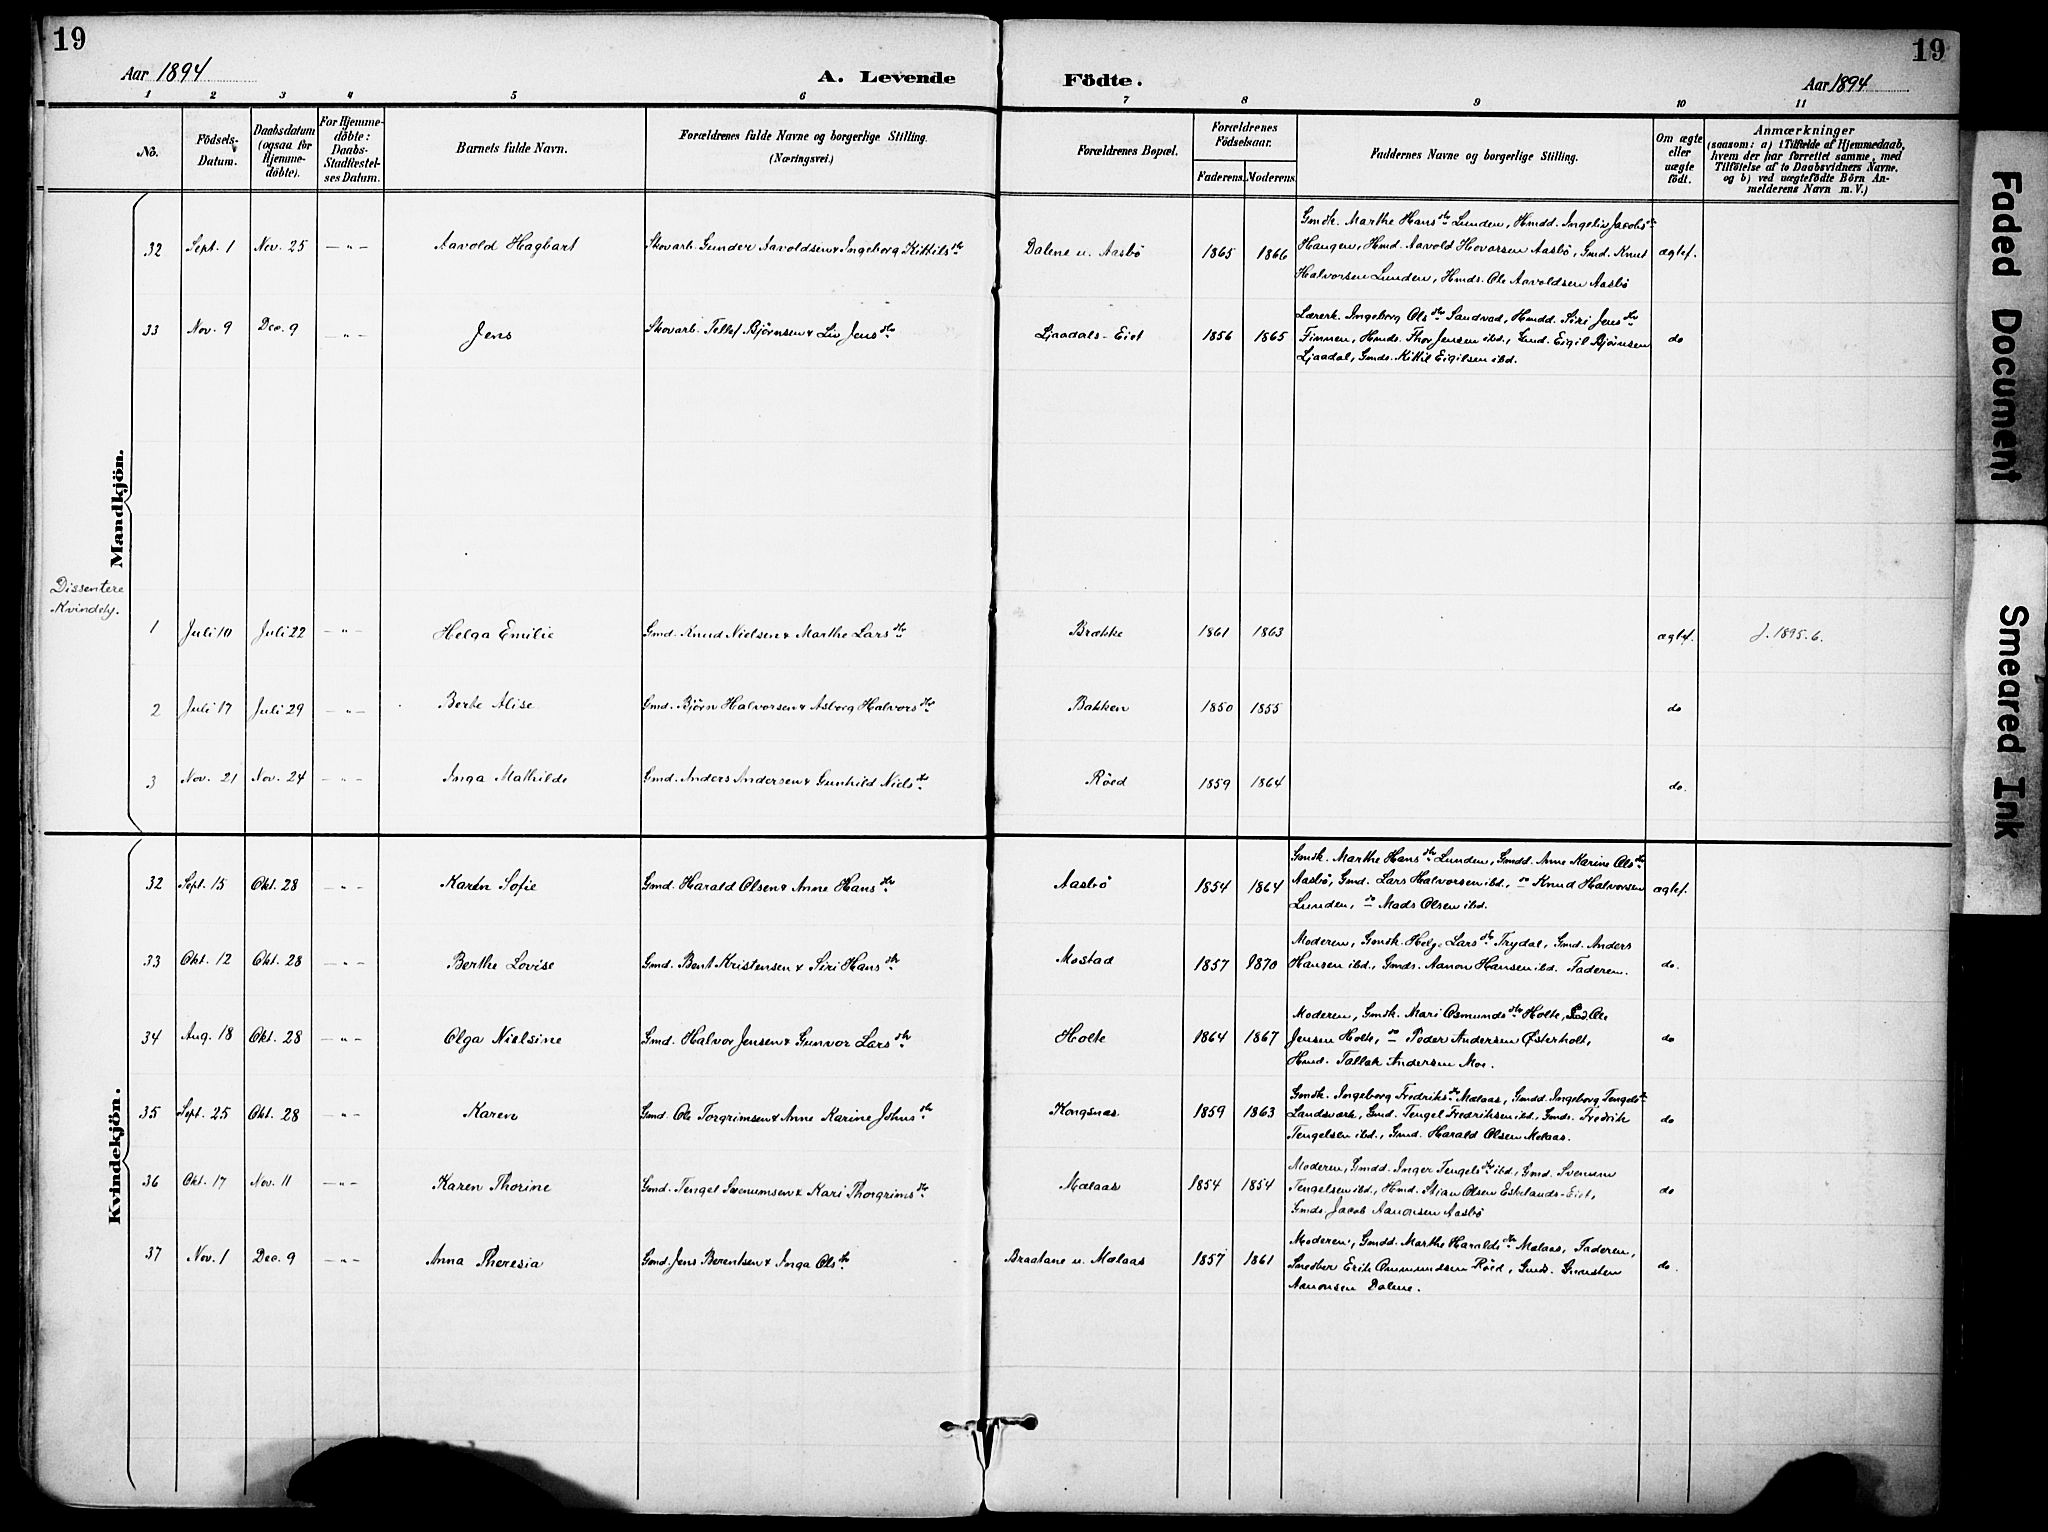 19
19
Aar 1894
A. Levende Födte.
Aar 1894
1 2 3 4 5 6 7 8 9 10 11
No.
Födsels-Datum.
Daabsdatum (ogsaa for Hjemmedöbte).
For Hjemmedöbte: Daabs-Stadfæstelses Datum.
Barnets fulde Navn.
Forældrenes fulde Navne og borgerlige Stilling.
(Næringsvei.)
Forældrenes Bopæl.
Forældrenes Födselsaar.
Faderens. Moderens.
Faddernes Navne og borgerlige Stilling.
Om ægte eller uægte födt.
Anmærkninger
(saasom: a) i Tilfælde af Hjemmedaab,
hvem der har forrettet samme, med
Tilföielse af to Daabsvidners Navne.
og b) ved uægtefödte Börn An-
melderens Navn m. V.)
Mandkjön.
32 Sept. 1 Nov. 25 — " — Aavold Hagbart Skovarb. Gunder Aavoldsen & Ingeborg Kittilsdtr Dalene u. Aasbø 1865 1866 Gmdk. Marthe Hansdtr Lunden, Hmdd. Ingeliv Jacobsdtr
Haugen, Hmd. Aavold Hovorsen Aasbø, Gmd. Knut
Halvorsen Lunden, Hmds. Ole Aavoldsen Aasbø ægtef.
33 Nov. 9 Dec. 9 — " — Jens Skovarb. Tellef Bjørnsen & Liv Jensdtr Ljaadals-Eiet 1856 1865 Lærerk. Ingeborg Olsdtr Sandvad, Hmdd. Siri Jensdtr
Finnen, Hmds. Thor Jensen ibd., Gmd. Eigil Bjørnsen
Ljaadal, Gmds. Kittil Eigilsen ibd. do
Dissentere
Kvindekj.
1 Juli 10 Juli 22 — " — Helga Emilie Gmd. Knud Nielsen & Marthe Larsdtr Brække 1861 1863 ægtef. J. 1895. 6.
2 Juli 17 Juli 29 — " — Berte Alise Gmd. Bjørn Halvorsen & Asborg Halvorsdtr Bakken 1850 1855 do
3 Nov. 21 Nov. 24 — " — Inga Mathilde Gmd. Anders Andersen & Gunhild Nielsdtr Røed 1859 1864 do.
Kvindekjön.
32 Sept. 15 Okt. 28 — " — Karen Sofie Gmd. Harald Olsen & Anne Hansdtr Aasbø 1854 1864 Gmdk. Marthe Hansdtr Lunden, Gmdd. Anne Karine Olsdtr
Aasbø, Gmd. Lars Halvorsen ibd., do Knud Halvorsen
Lunden, do Mads Olsen ibd. ægtef.
33 Okt. 12 Okt. 28 — " — Berthe Lovise Gmd. Bent Kristensen & Siri Hansdtr Mostad 1857 1870 Moderen, Gmdk. Helg. Larsdtr Trydal, Gmd. Anders
Hansen ibd., Gmds. Aanon Hansen ibd. Faderen. do.
34 Aug. 18 Okt. 28 — " — Olga Nielsine Gmd. Halvor Jensen & Gunvor Larsdtr Holte 1864 1867 Moderen, Gmdk. Mari Osmundsdtr Holte, Ole
Jensen Holte, do Peder Andersen Østerholt,
Hmd. Tallak Andersen Moe. do
35 Sept. 25 Okt. 28 — " — Karen Gmd. Ole Torgrimsen & Anne Karine Johnsdtr Kongsnæs 1859 1863 Gmdk. Ingeborg Fredriksdtr Mælaas, Gmdd. Ingeborg Tengelsdtr
Landsværk, Gmd. Tengel Fredriksen ibd., Gmds. Fredrik
Tengelsen ibd., Gmd. Harald Olsen Mælaas. do
36 Okt. 17 Nov. 11 — " — Karen Thorine Gmd. Tengel Svenumsen & Kari Thorgrimsdtr Mælaas 1854 1854 Moderen, Gmdd. Inger Tengelsdtr ibd., Gmd. Svenum
Tengelsen ibd., Hmd. Stian Olsen Eskelands-Eiet,
Gmds. Jacob Aanonsen Aasbø do
37 Nov. 1 Dec. 9 — " — Anna Theresia Gmd. Jens Berentsen & Inga Olsdtr Braatane u. Mælaas 1857 1861 Moderen, Gmdd. Marthe Haraldsdtr Mælaas, Faderen,
Snedker Erik Ommundsen Røed, Gmds. Gunsten
Aanonsen Dalene. do.
Faded Document
Smeared Ink